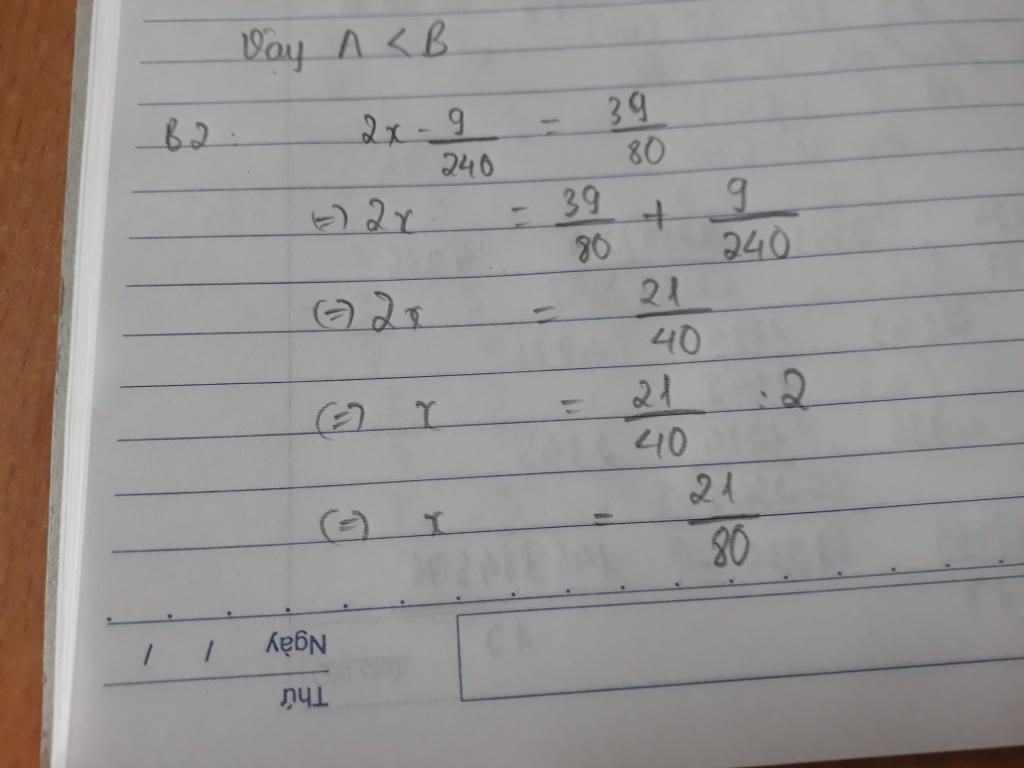 Vậy A < B
B2: 2x - 9/240 = 39/80
(=) 2x = 39/80 + 9/240
(=) 2x = 21/40
(=) x = 21/40 : 2
(=) x = 21/80
Ngày / /
Thứ